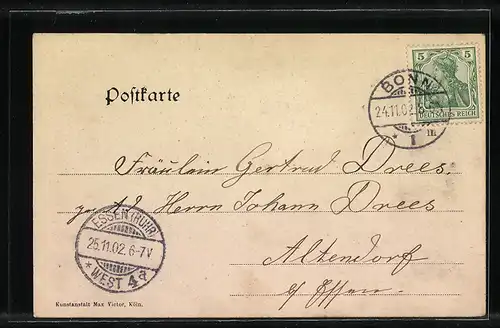 Postkarte
5 5
DEUTSCHES REICH
BONN
24.11.02.
* 1 m
Fräulein Gertrud Drees.
Herrn Johann Drees
ESSEN (RUHR)
25.11.02. 6-7V
* WEST 4a
Altendorf
b/Essen.
Kunstanstalt Max Victor, Köln.